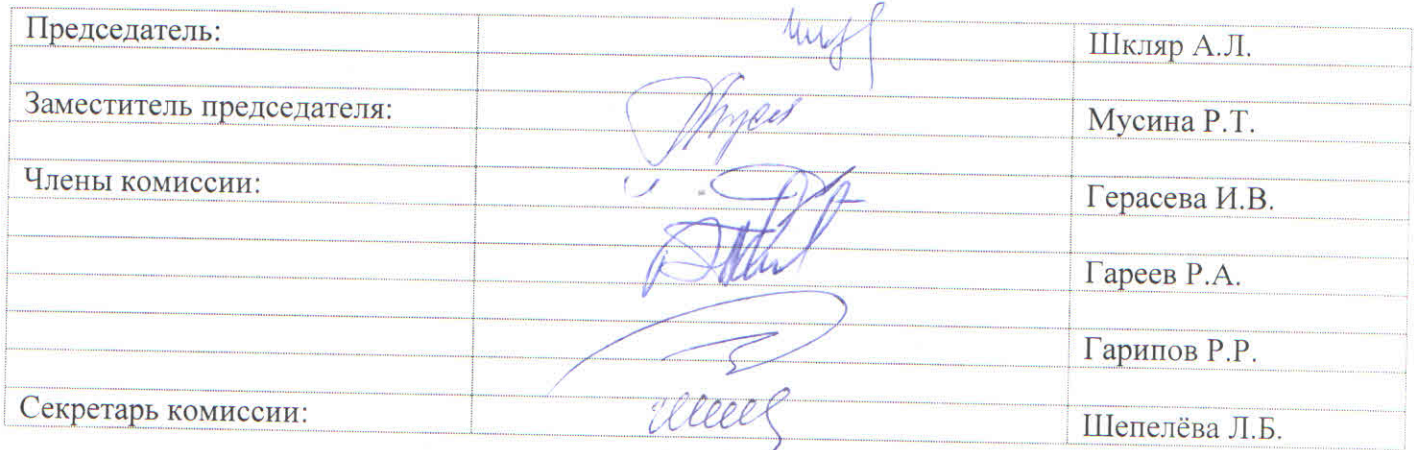 Председатель: Шкляр А.Л.
Заместитель председателя: Мусина Р.Т.
Члены комиссии: Герасева И.В.
Гареев Р.А.
Гарипов Р.Р.
Секретарь комиссии: Шепелёва Л.Б.